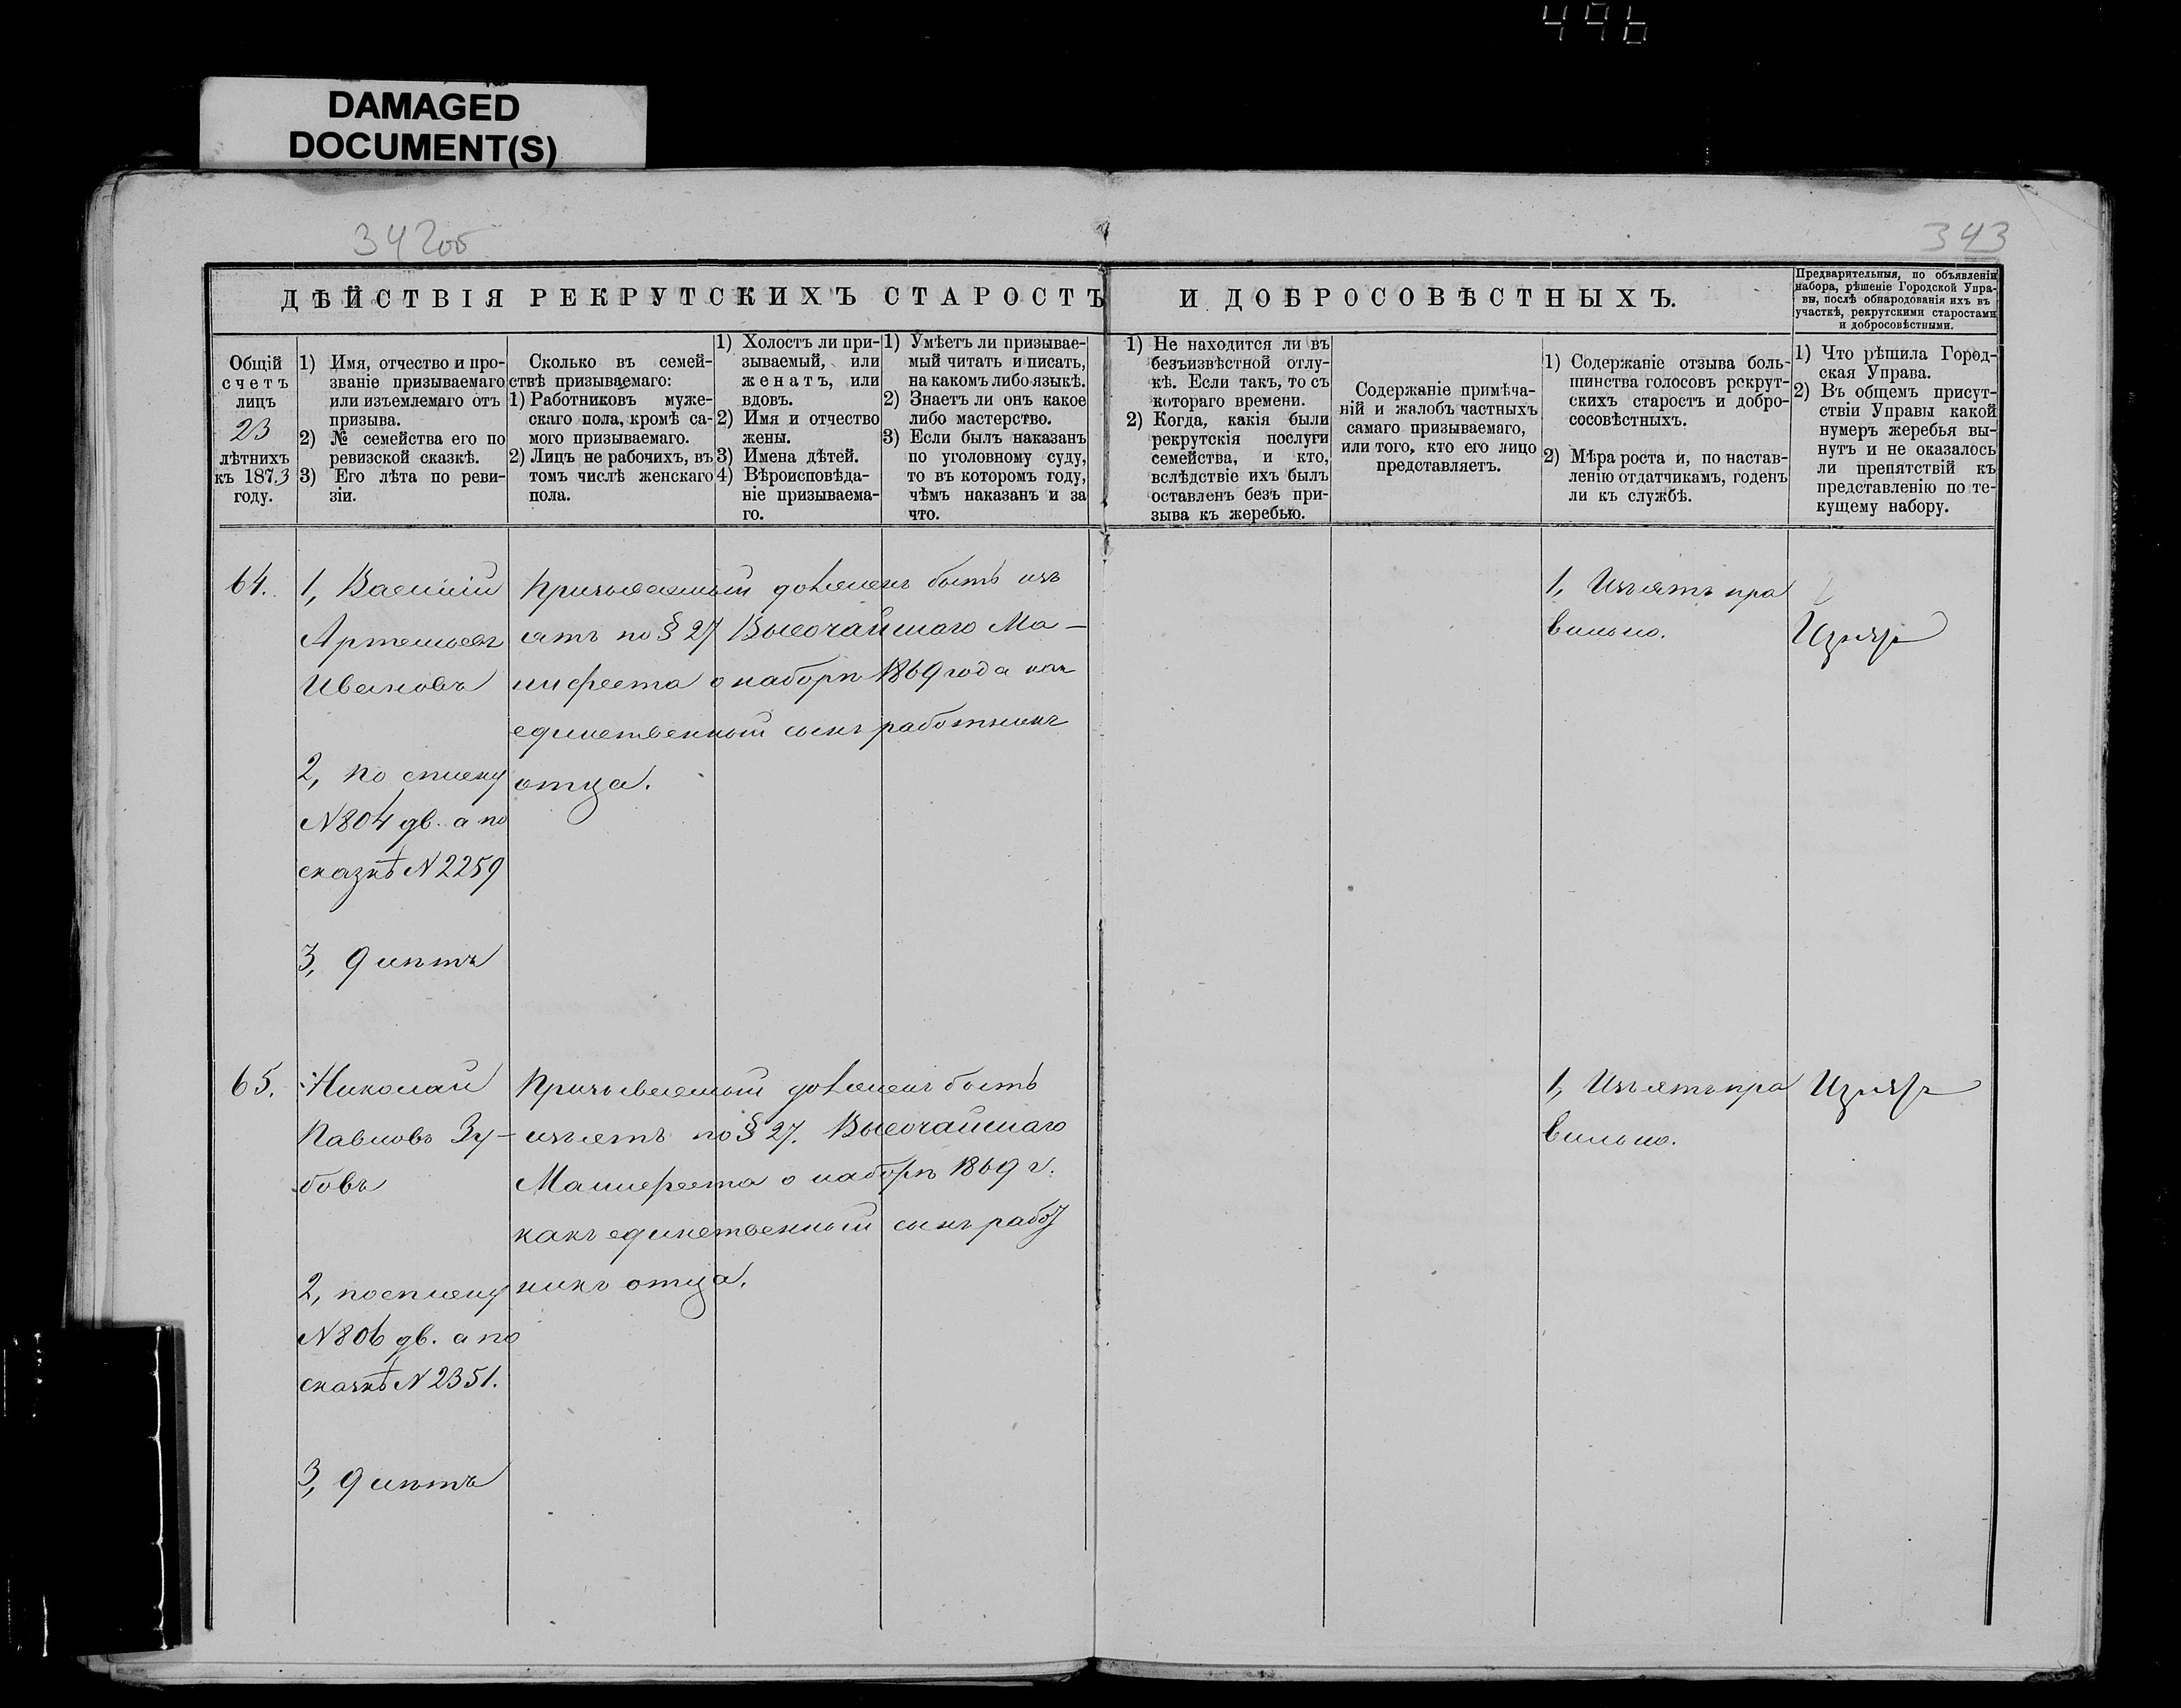 446
DAMAGED
DOCUMENT(S)
342об
343
ДѢЙСТВІЯ РЕКРУТСКИХЪ СТАРОСТЪ И ДОБРОСОВѢСТНЫХЪ.
Предварительныя, по объявленіи
набора, рѣшеніе Городской Упра-
вы, послѣ обнародованія ихъ въ
участкѣ, рекрутскими старостами
и добросовѣстными.
Общій
счетъ
лицъ
23
лѣтнихъ
къ 1873
году.
1) Имя, отчество и про-
званіе призываемаго
или изъемлемаго отъ
призыва.
2) № семейства его по
ревизской сказкѣ.
3) Его лѣта по реви-
зіи.
Сколько въ семей-
ствѣ призываемаго:
1) Работниковъ муже-
скаго пола, кромѣ са-
мого призываемаго.
2) Лицъ не рабочихъ, въ
томъ числѣ женскаго
пола.
1) Холостъ ли при-
зываемый, или
женатъ, или
вдовъ.
2) Имя и отчество
жены.
3) Имена дѣтей.
4) Вѣроисповѣда-
ніе призываема-
го.
1) Умѣетъ ли призывае-
мый читать и писать,
на какомъ либо языкѣ.
2) Знаетъ ли онъ какое
либо мастерство.
3) Если былъ наказанъ
по уголовному суду,
то въ которомъ году,
чѣмъ наказанъ и за
что.
1) Не находится ли въ
безъизвѣстной отлу-
кѣ. Если такъ, то съ
котораго времени.
2) Когда, какія были
рекрутскія послуги
семейства, и кто,
вслѣдствіе ихъ былъ
оставленъ безъ при-
зыва къ жеребью.
Содержаніе примѣча-
ній и жалобъ частныхъ
самаго призываемаго,
или того, кто его лицо
представляетъ.
1) Содержаніе отзыва боль-
шинства голосовъ рекрут-
скихъ старостъ и добро-
сосовѣстныхъ.
2) Мѣра роста и, по настав-
ленію отдатчикамъ, годенъ
ли къ службѣ.
1) Что рѣшила Город-
ская Управа.
2) Въ общемъ присут-
ствіи Управы какой
нумеръ жеребья вы-
нутъ и не оказалось
ли препятствій къ
представленію по те-
кущему набору.
64.
1, Василій
Артемьевъ
Ивановъ
2, по списку
N 804 дв. а по
сказкѣ N 2259
3, 9 лѣтъ
Призываемый долженъ быть изъ
ятъ по § 27 Высочайшаго Ма-
нифеста о наборѣ 1869 года как
единственный сынъ работникъ
отца.
1, Изъятъ пра
вильно.
Изъять
65.
Николай
Павловъ Зу-
бовъ
2, по списку
N 806 дв. а по
сказкѣ N 2351.
3, 9 лѣтъ
Призываемый долженъ быть
изъятъ по § 27. Высочайшаго
Манифеста о наборѣ 1869 г.
какъ единственный сынъ работ
никъ отца.
1, Изъятъ пра
вильно.
Изъять